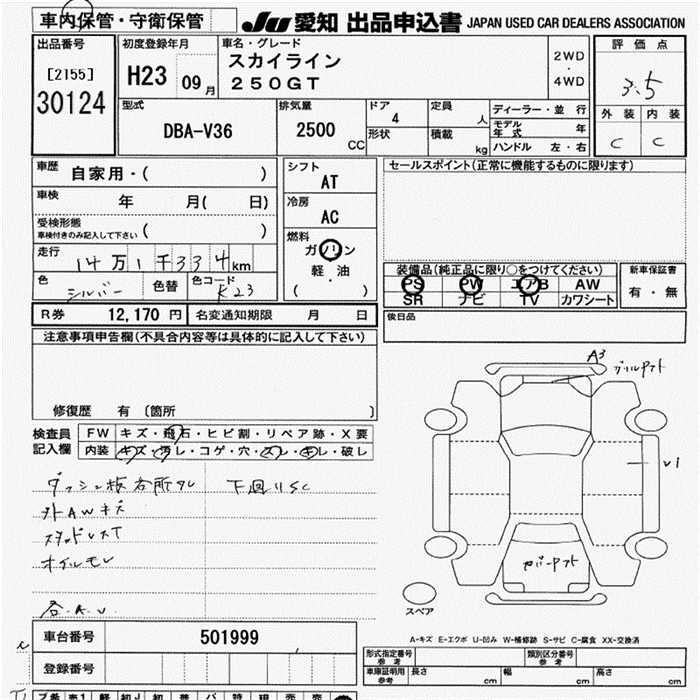 車内保管・守衛保管
JU 愛知 出品申込書 JAPAN USED CAR DEALERS ASSOCIATION
出品番号
[2155]
30124
初度登録年月
H23 09月
車名・グレード
スカイライン
250GT
2WD
・
4WD
評価点
3.5
外装 内装
C C
型式
DBA-V36
排気量
2500 CC
ドア
4
形状
定員
人
積載
kg
ディーラー・並行
モデル年式 年
ハンドル 左・右
車歴
自家用・( )
車検 年 月( 日)
受検形態
車検付きのみ記入して下さい ( )
走行
14万1千334km
色 シルバー 色替 色コード K23
シフト
AT
冷房
AC
燃料
ガソリン
軽・油
( )
セールスポイント(正常に機能するものに限ります)
装備品(純正品に限り○をつけてください)
PS PW エアB AW
SR ナビ TV カワシート
新車保証書
有・無
後日品
R券 12,170円 名変通知期限 月 日
注意事項申告欄(不具合内容等は具体的に記入して下さい)
修復歴 有 〔箇所 〕
検査員記入欄
FW キズ・飛石・ヒビ割・リペア跡・X要
内装 キズ・汚レ・コゲ・穴・スレ・キレ・破レ
ダッシュ板右所タレ 下廻りSC
外AWキズ
オイルモレ
A3
V1
スペア
A-キズ E-エクボ U-凹み W-補修跡 S-サビ C-腐食 XX-交換済
車台番号 501999
登録番号
形式指定番号
参考
類別区分番号
参考
車庫証明用
参考
長さ cm 幅 cm 高さ cm